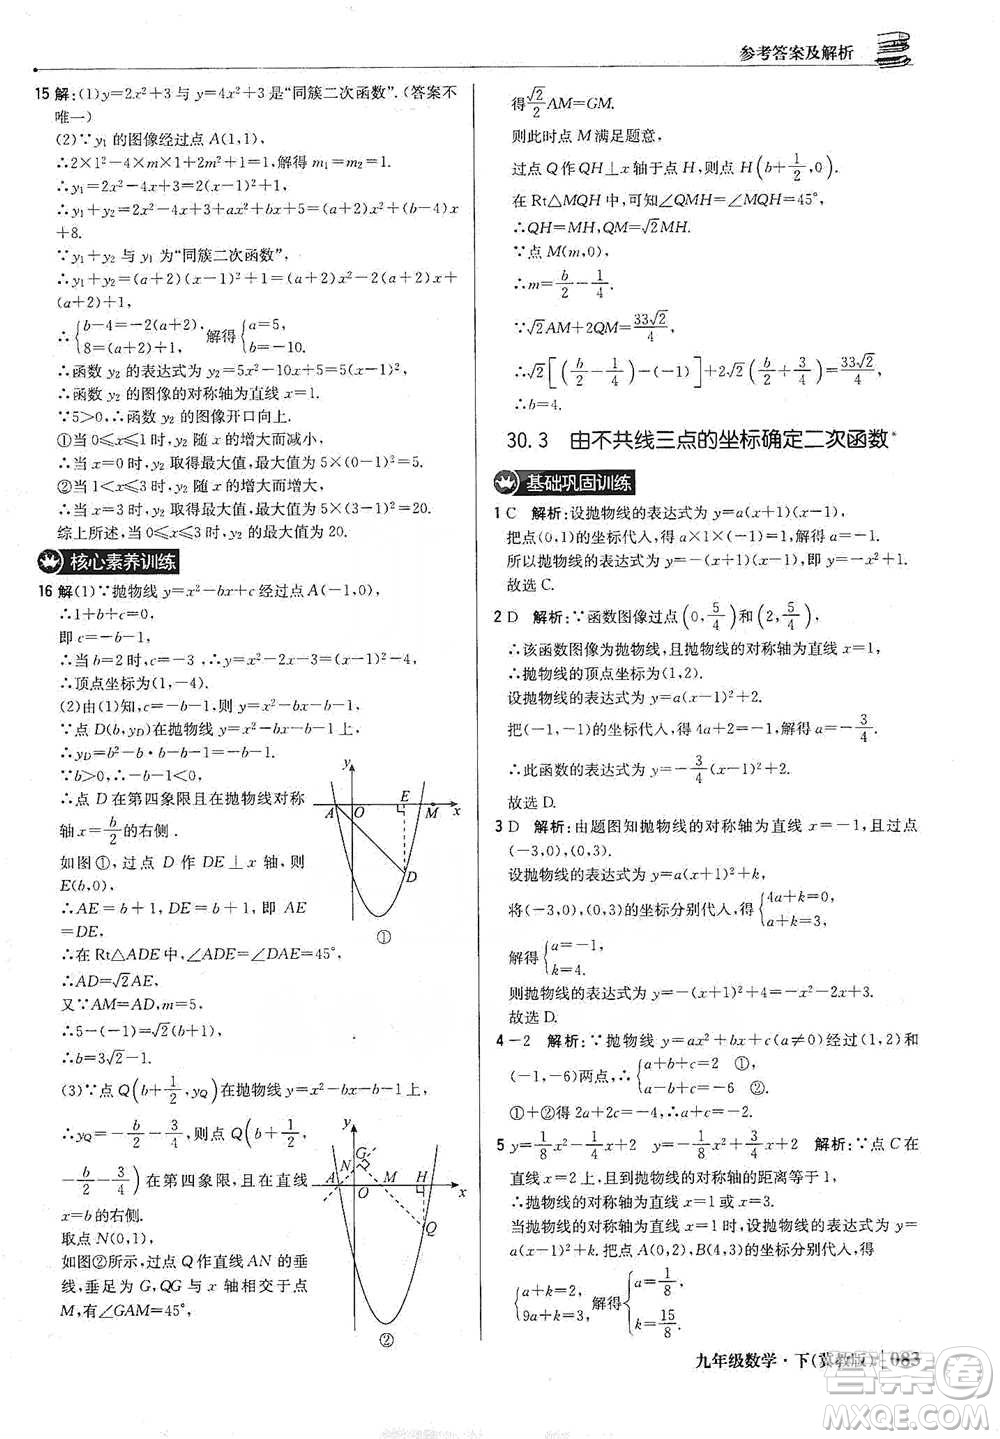 参考答案及解析
15 解:(1)y=2x²+3 与 y=4x²+3 是“同簇二次函数”.(答案不
唯一)
(2)∵y₁ 的图像经过点 A(1,1),
∴2×1²-4×m×1+2m²+1=1,解得 m₁=m₂=1.
∴y₁=2x²-4x+3=2(x-1)²+1.
∴y₁+y₂=2x²-4x+3+ax²+bx+5=(a+2)x²+(b-4)x
+8.
∵y₁+y₂ 与 y₁ 为“同簇二次函数”,
∴y₁+y₂=(a+2)(x-1)²+1=(a+2)x²-2(a+2)x+
(a+2)+1,
∴{b-4=-2(a+2), 8=(a+2)+1. 解得{a=5, b=-10.
∴函数 y₂ 的表达式为 y₂=5x²-10x+5=5(x-1)².
∴函数 y₂ 的图像的对称轴为直线 x=1.
∵5>0,∴函数 y₂ 的图像开口向上.
①当 0≤x≤1 时,y₂ 随 x 的增大而减小.
∴当 x=0 时,y₂ 取得最大值,最大值为 5×(0-1)²=5.
②当 1<x≤3 时,y₂ 随 x 的增大而增大,
∴当 x=3 时,y₂ 取得最大值,最大值为 5×(3-1)²=20.
综上所述,当 0≤x≤3 时,y₂ 的最大值为 20.
核心素养训练
16 解(1)∵抛物线 y=x²-bx+c 经过点 A(-1,0),
∴1+b+c=0,
即 c=-b-1.
∴当 b=2 时,c=-3 ,∴y=x²-2x-3=(x-1)²-4,
∴顶点坐标为(1,-4).
(2)由(1)知,c=-b-1,则 y=x²-bx-b-1.
∵点 D(b,y_D)在抛物线 y=x²-bx-b-1 上,
∴y_D=b²-b·b-b-1=-b-1.
∵b>0,∴-b-1<0.
∴点 D 在第四象限且在抛物线对称
轴 x=b/2 的右侧.
如图①,过点 D 作 DE⊥x 轴,则
E(b,0),
∴AE=b+1,DE=b+1,即 AE
=DE,
∴在 Rt△ADE 中,∠ADE=∠DAE=45°,
∴AD=√2AE,
又∵AM=AD,m=5,
∴5-(-1)=√2(b+1),
∴b=3√2-1.
y
A O E M x
D
①
(3)∵点 Q(b+1/2,y_Q)在抛物线 y=x²-bx-b-1 上,
∴y_Q=-b/2-3/4,则点 Q(b+1/2,
-b/2-3/4)在第四象限,且在直线
x=b 的右侧.
取点 N(0,1),
如图②所示,过点 Q 作直线 AN 的垂
线,垂足为 G,QG 与 x 轴相交于点
M,有∠GAM=45°,
y
G
N
A O M H x
Q
②
得√2/2 AM=GM.
则此时点 M 满足题意,
过点 Q 作 QH⊥x 轴于点 H,则点 H(b+1/2,0).
在 Rt△MQH 中,可知∠QMH=∠MQH=45°,
∴QH=MH,QM=√2MH.
∵点 M(m,0),
∴m=b/2-1/4.
∵√2AM+2QM=33√2/4,
∴√2[(b/2-1/4)-(-1)]+2√2(b/2+3/4)=33√2/4,
∴b=4.
30.3 由不共线三点的坐标确定二次函数*
基础巩固训练
1 C 解析:设抛物线的表达式为 y=a(x+1)(x-1),
把点(0,1)的坐标代人,得 a×1×(-1)=1,解得 a=-1.
所以抛物线的表达式为 y=-(x+1)(x-1)=-x²+1.
故选 C.
2 D 解析:∵函数图像过点(0,5/4)和(2,5/4),
∴该函数图像为抛物线,且抛物线的对称轴为直线 x=1.
∴抛物线的顶点坐标为(1,2).
设抛物线的表达式为 y=a(x-1)²+2.
把(-1,-1)的坐标代人,得 4a+2=-1,解得 a=-3/4.
∴此函数的表达式为 y=-3/4(x-1)²+2.
故选 D.
3 D 解析:由题图知抛物线的对称轴为直线 x=-1,且过点
(-3,0),(0,3).
设抛物线的表达式为 y=a(x+1)²+k,
将(-3,0),(0,3)的坐标分别代人,得{4a+k=0, a+k=3,
解得{a=-1, k=4.
则抛物线的表达式为 y=-(x+1)²+4=-x²-2x+3.
故选 D.
4 -2 解析:∵抛物线 y=ax²+bx+c(a≠0)经过(1,2)和
(-1,-6)两点,∴{a+b+c=2 ① a-b+c=-6 ②
①+②得 2a+2c=-4,∴a+c=-2.
5 y=1/8x²-1/4x+2 y=-1/8x²+3/4x+2 解析:∵点 C 在
直线 x=2 上,且到抛物线的对称轴的距离等于1,
∴抛物线的对称轴为直线 x=1 或直线 x=3.
当抛物线的对称轴为直线 x=1 时,设抛物线的表达式为 y=
a(x-1)²+k.把点 A(0,2),B(4,3)的坐标代人,得
{a+k=2, 9a+k=3, 解得{a=1/8, k=15/8.
九年级数学·下(冀教版) 083
答案圈
MXQE.COM